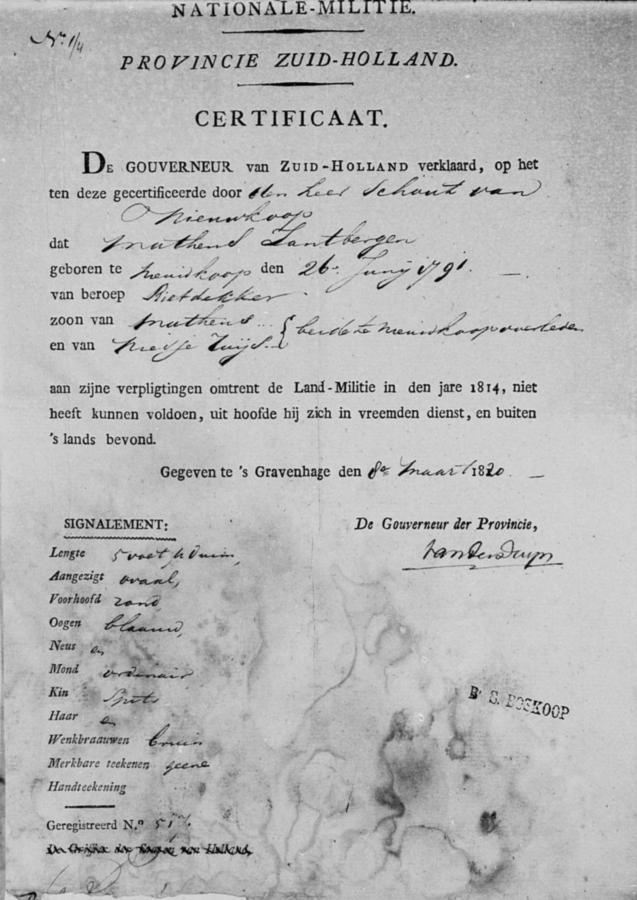 NATIONALE-MILITIE.
PROVINCIE ZUID-HOLLAND.
CERTIFICAAT.
DE GOUVERNEUR van ZUID-HOLLAND verklaard, op het
ten deze gecertificeerde door den heer Schout van
Nieuwkoop
dat Matheus Zantbergen
geboren te Nieuwkoop den 26e Junij 1791.
van beroep Rietdekker
zoon van Matheus
en van beide te Nieuwkoop overleden
aan zijne verpligtingen omtrent de Land-Militie in den jare 1814, niet
heeft kunnen voldoen, uit hoofde hij zich in vreemden dienst, en buiten
's lands bevond.
Gegeven te 's Gravenhage den 8e Maart 1820
SIGNALEMENT:
De Gouverneur der Provincie,
van der Duyn
Lengte 5 voet duim,
Aangezigt ovaal,
Voorhoofd rond
Oogen blaauw,
Neus en
Mond ordinair
Kin spits
Haar en
Wenkbraauwen bruin
Merkbare teekenen geene
Handteekening
B. S. BOSKOOP
Geregistreerd N.º 517